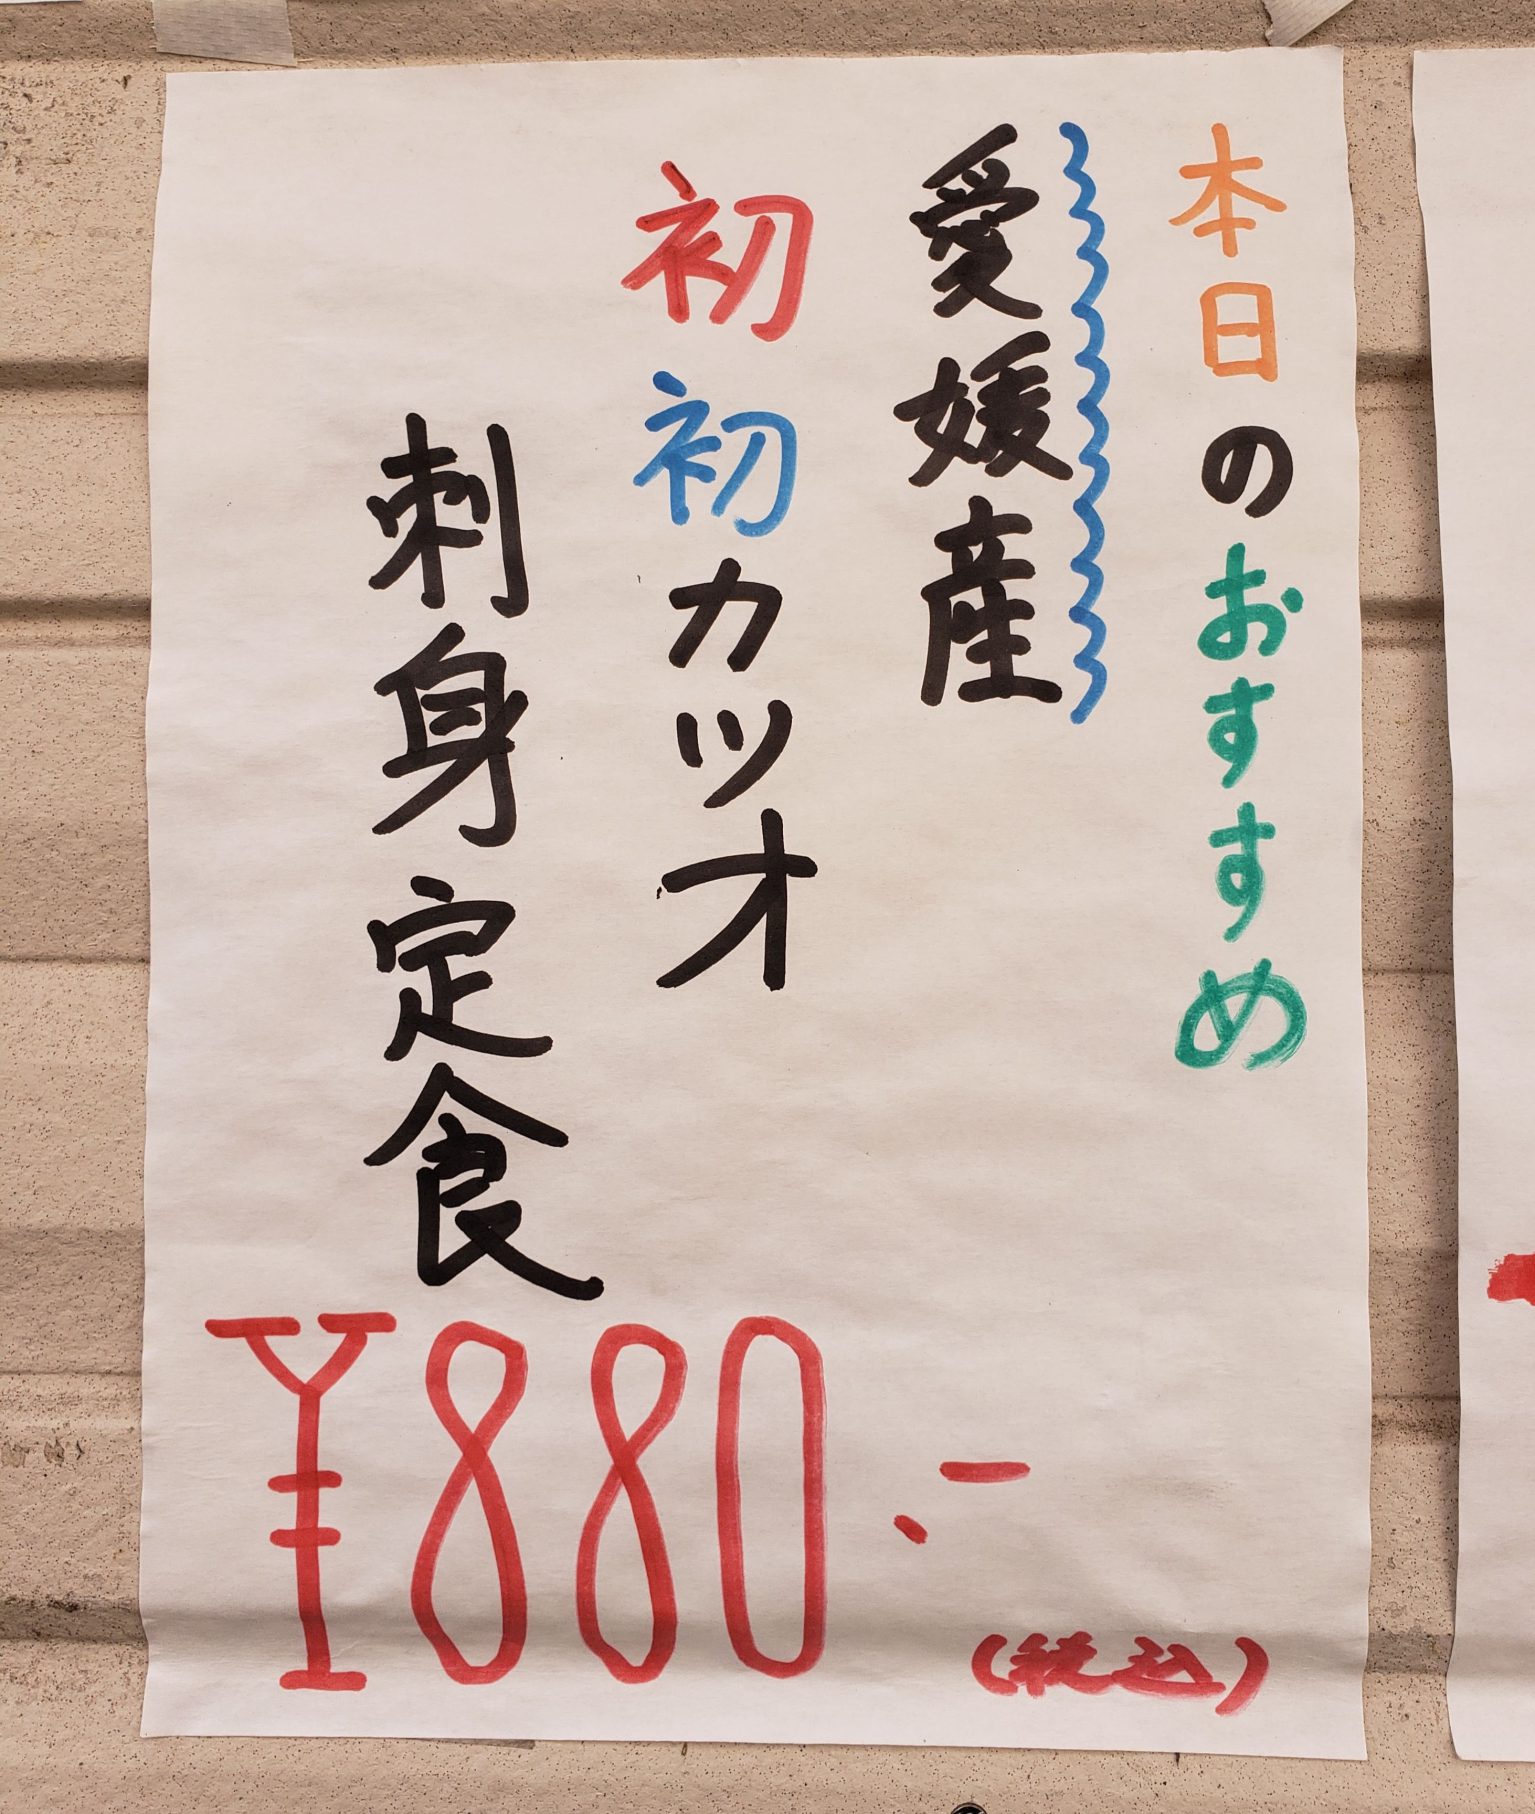 本日のおすすめ
愛媛産
初初カツオ
刺身定食
¥880.-
(税込)